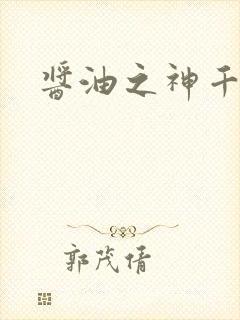 醬油之神千
郭茂倩